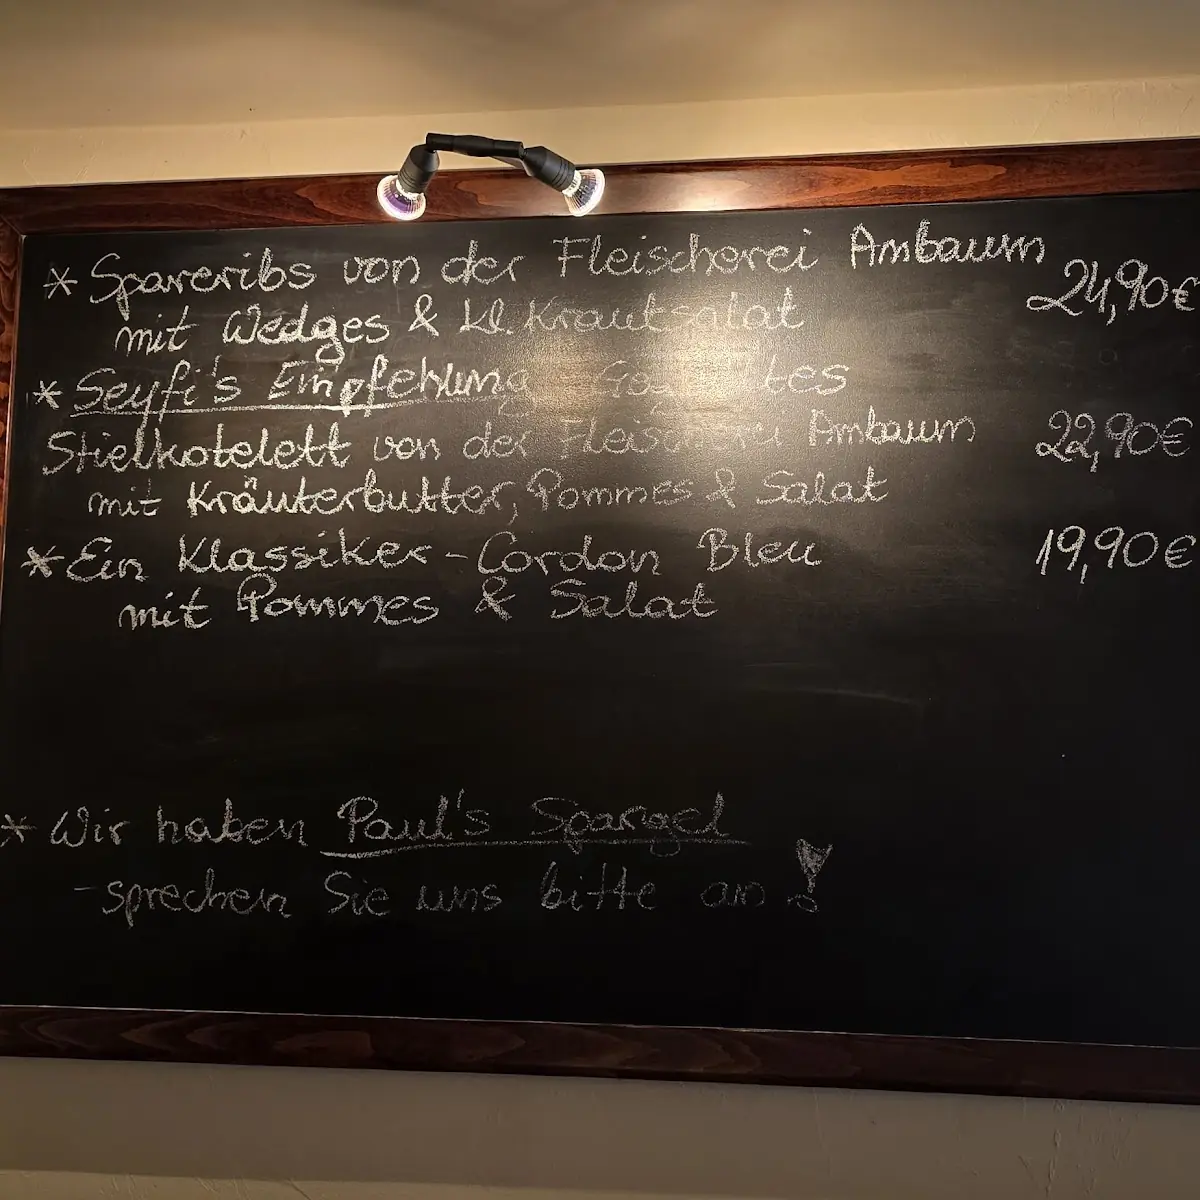 * Spareribs von der Fleischerei Ambaum
24,90€
mit Wedges & kl. Krautsalat
* Seyfi's Empfehlung
Stielkotelett von der Fleischerei Ambaum 22,90€
mit Kräuterbutter, Pommes & Salat
* Ein Klassiker - Cordon Bleu 19,90€
mit Pommes & Salat
* Wir haben Paul's Spargel
- sprechen Sie uns bitte an!